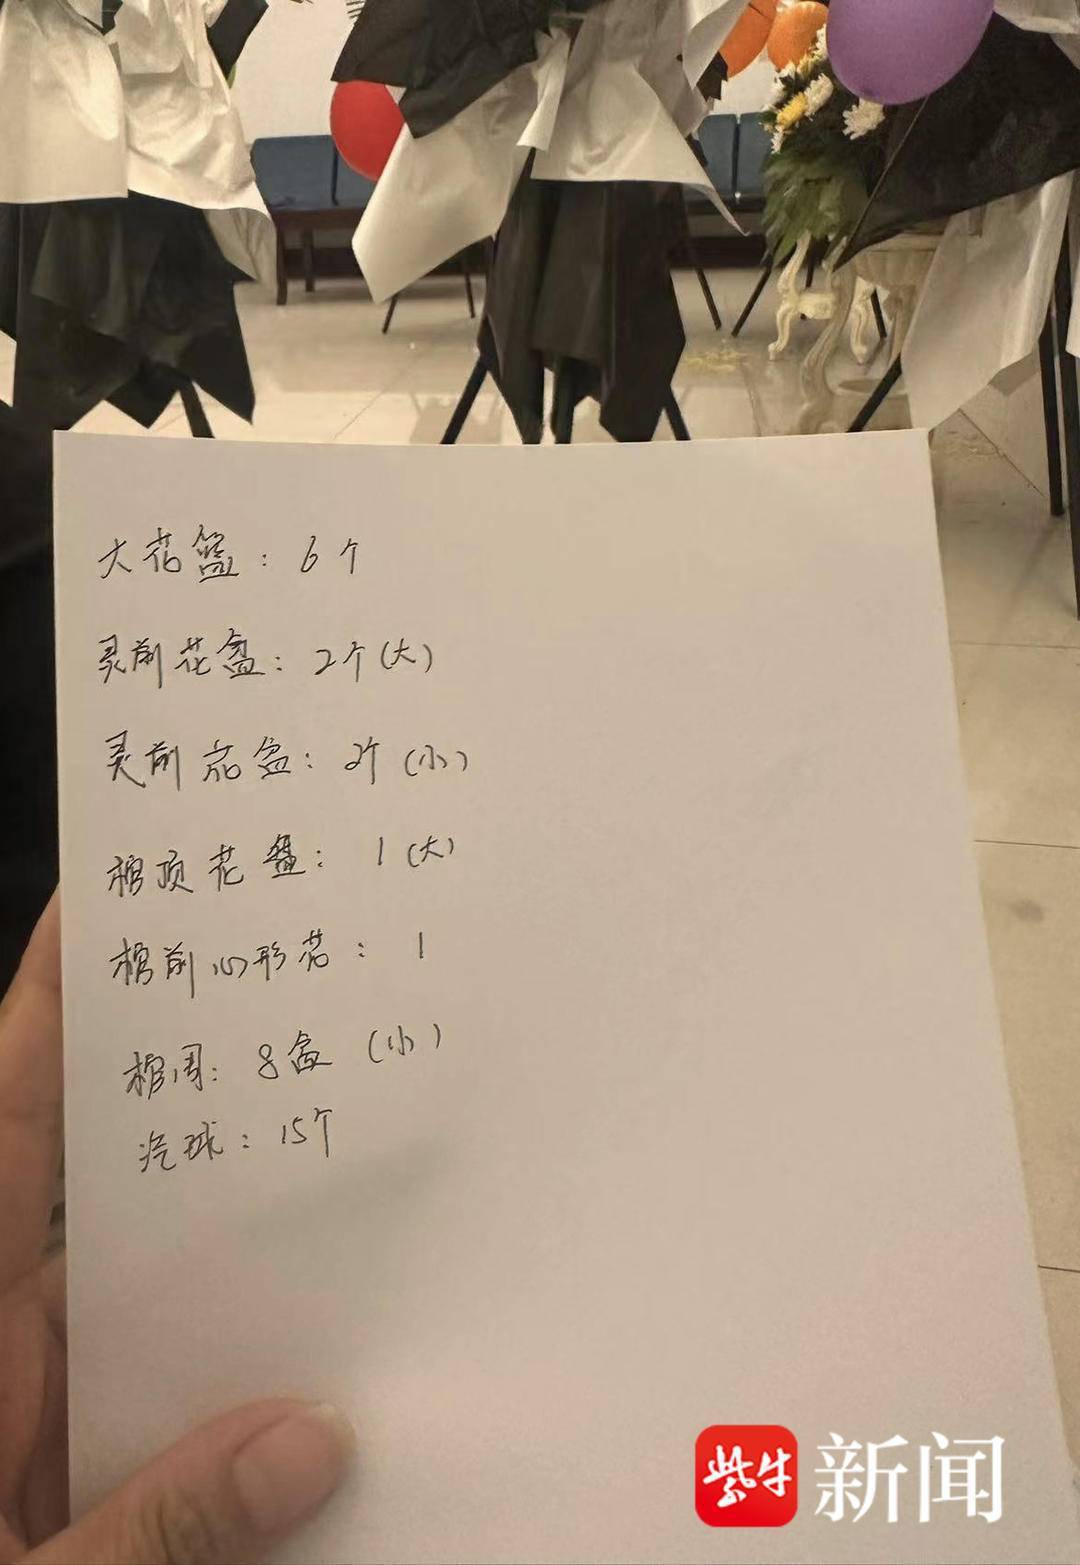 大花篮：6个
灵前花盆：2个(大)
灵前花盆：2个(小)
棺顶花盆：1(大)
棺前心形花：1
棺周：8盆(小)
汽球：15个
紫牛新闻